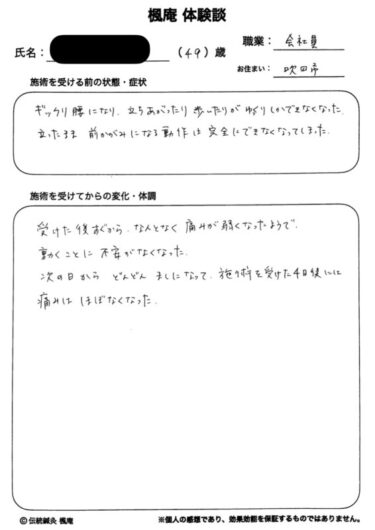 楓庵 体験談
氏名： （49）歳
職業： 会社員
お住まい： 吹田市
施術を受ける前の状態・症状
ギックリ腰になり、立ちあがったり 歩いたりが ゆっくりしかできなくなった。
立ったまま 前かがみになる動作は 完全にできなくなってしまった。
施術を受けてからの変化・体調
受けた後すぐから、なんとなく 痛みが弱くなったようで、
動くことに 不安がなくなった。
次の日から どんどん ましになって、施術を受けた4日後には
痛みは ほぼなくなった。
© 伝統鍼灸 楓庵
※個人の感想であり、効果効能を保証するものではありません。